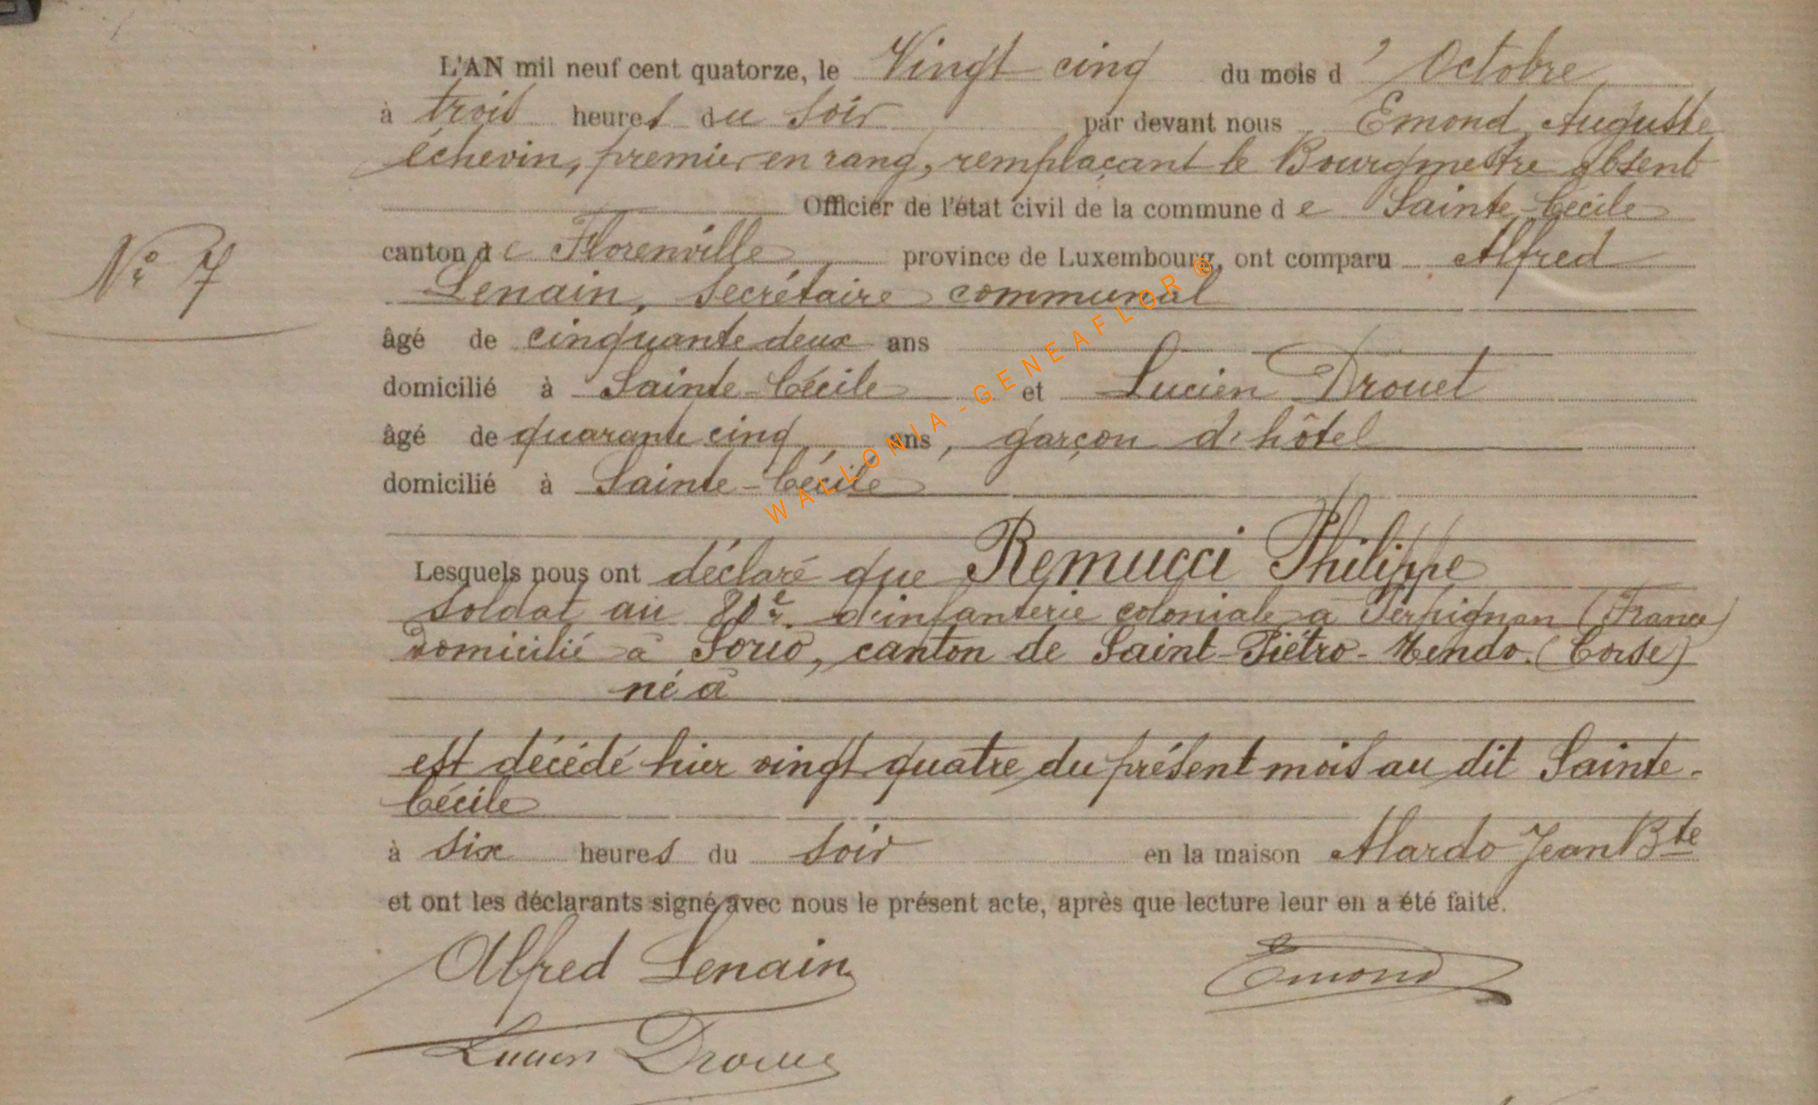 L'AN mil neuf cent quatorze, le Vingt cinq du mois d' Octobre
à trois heures du soir par devant nous Emond, Auguste
échevin, premier en rang, remplaçant le Bourgmestre absent
Officier de l'état civil de la commune de Sainte Cécile
N° 7
canton de Florenville province de Luxembourg, ont comparu Alfred
Lenain, secrétaire communal
âgé de cinquante deux ans
domicilié à Sainte-Cécile et Lucien Drouet
âgé de quarante cinq, ans, garçon d'hôtel
domicilié à Sainte-Cécile
WALLONIA-GENEAFLOR ®
Lesquels nous ont déclaré que Remucci Philippe
soldat au d'infanterie coloniale à Perpignan (France)
domicilié à Sorio, canton de Saint-Piétro-Tendo. (Corse)
né à
est décédé hier vingt quatre du présent mois au dit Sainte-
Cécile
à six heures du soir en la maison Alardo Jean Bte
et ont les déclarants signé avec nous le présent acte, après que lecture leur en a été faite.
Alfred Lenain Emond
Lucien Drouet